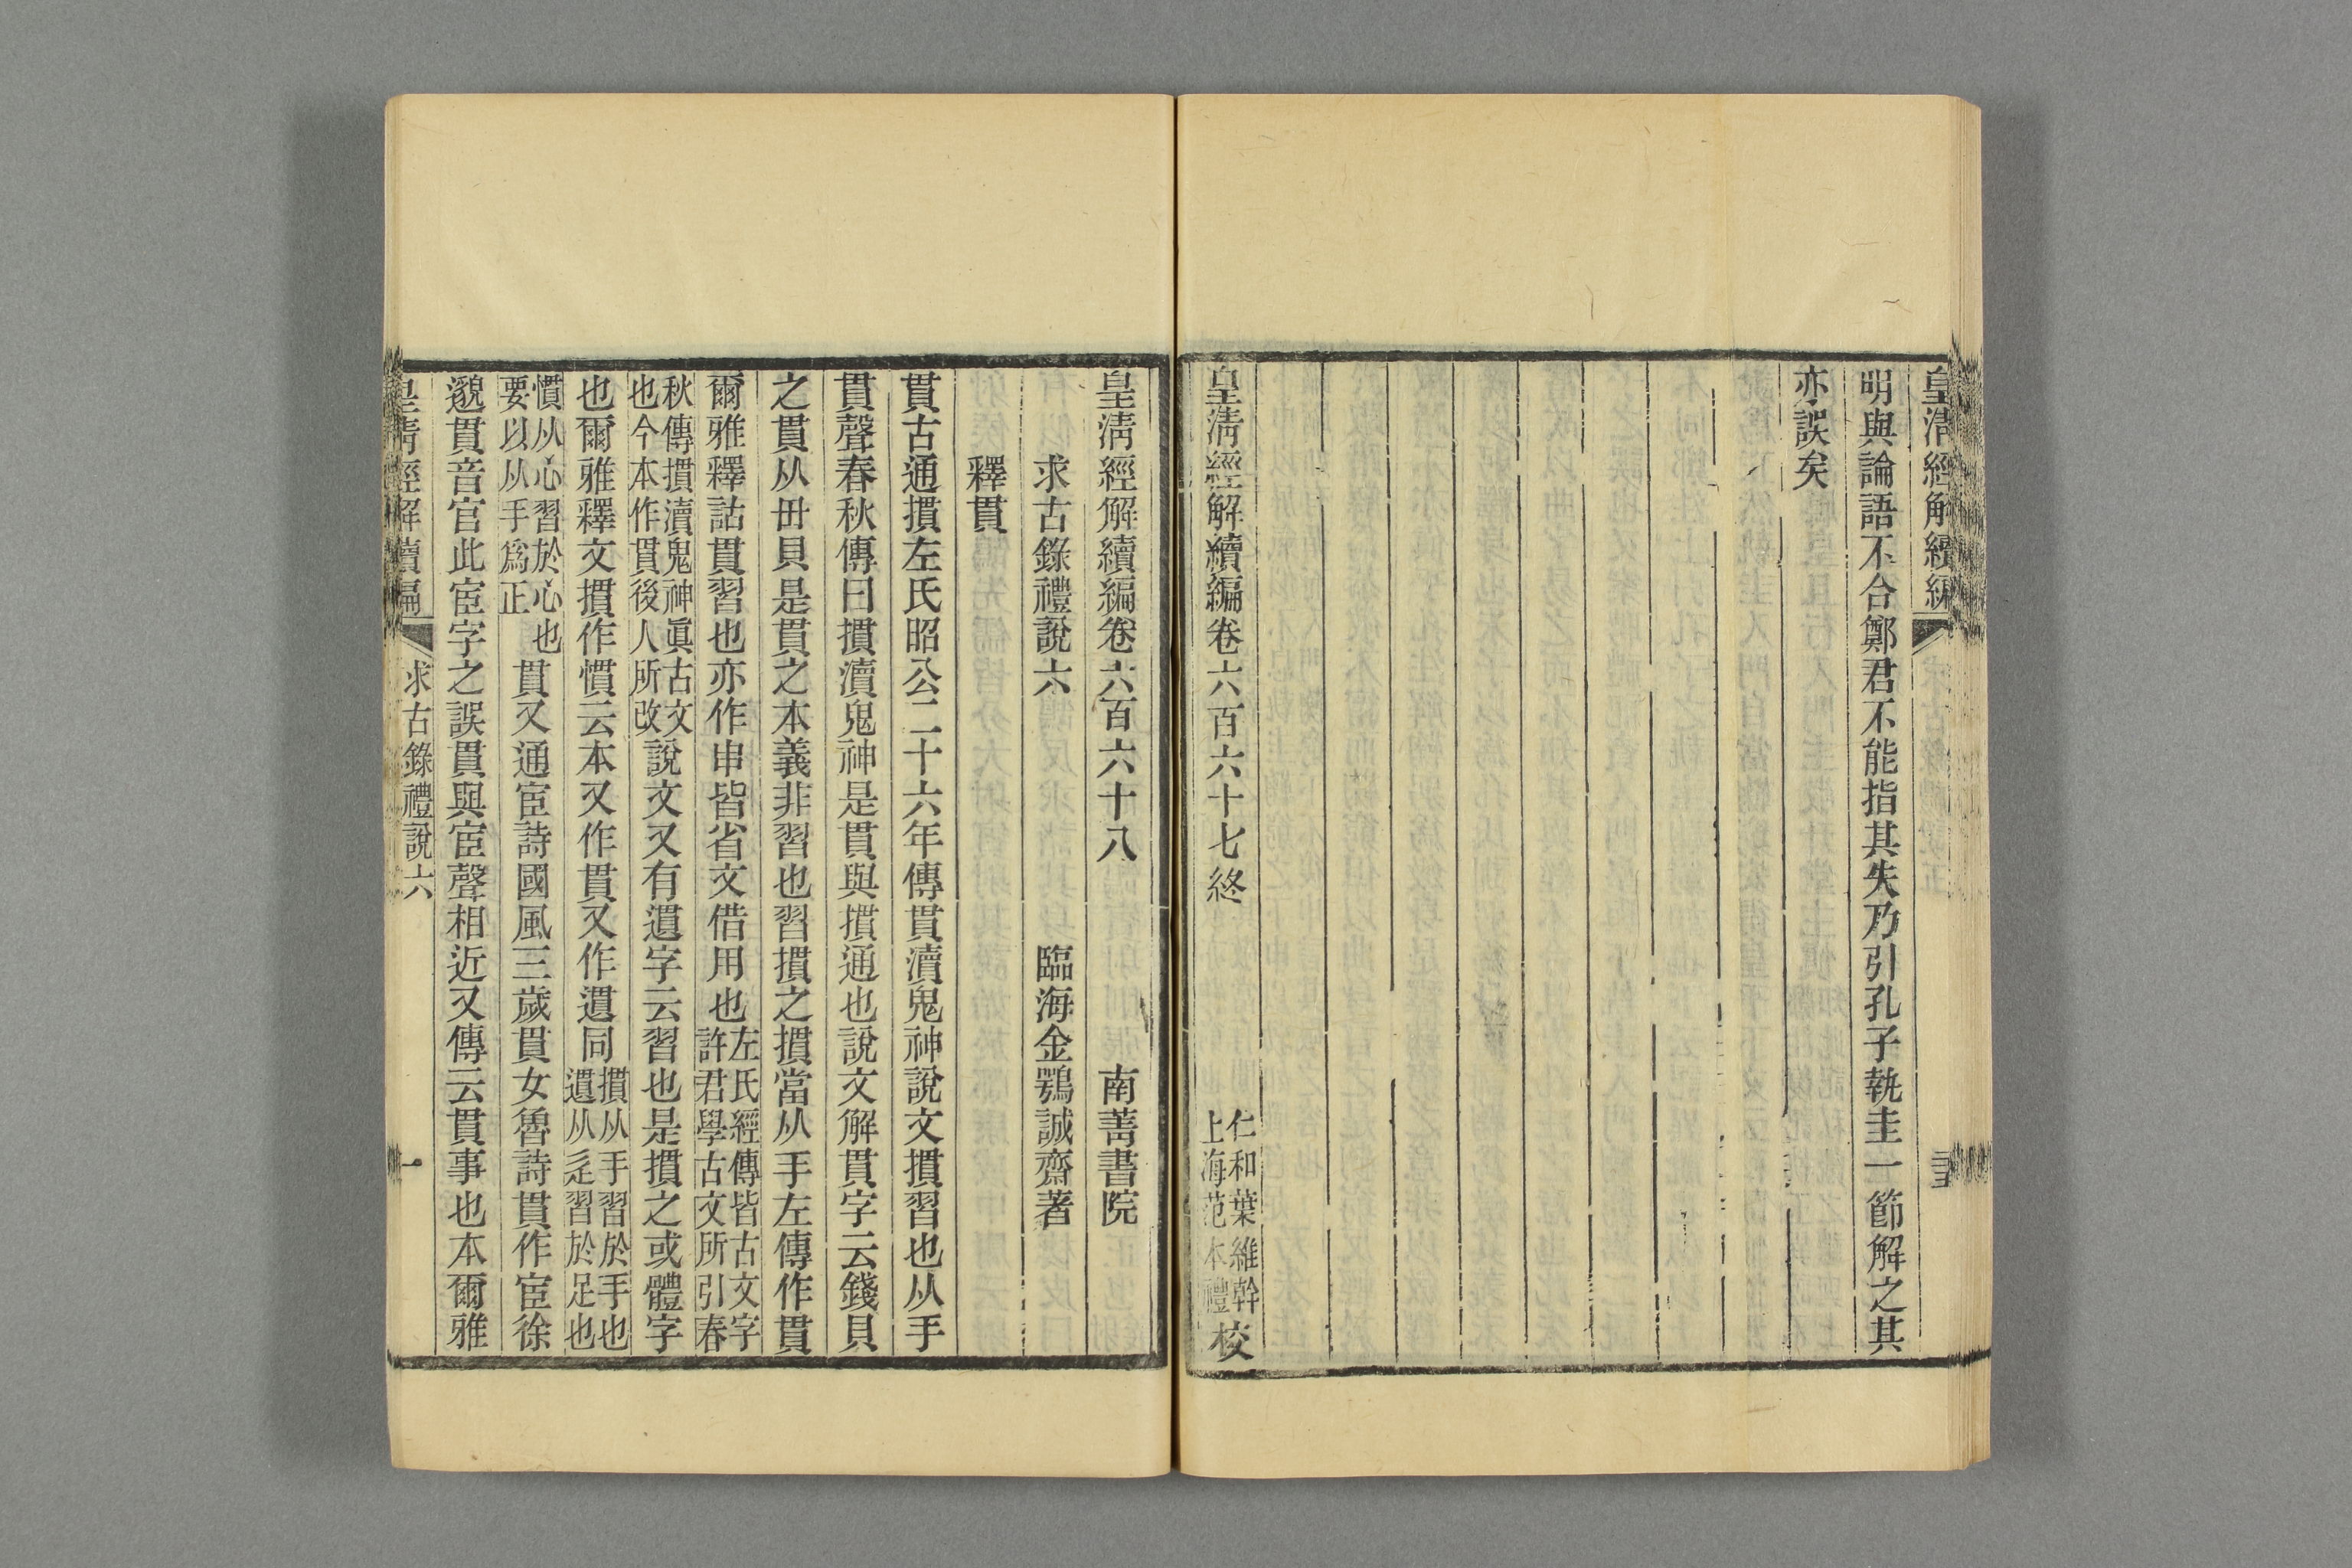 皇清經解續編
明與論語不合鄭君不能指其失乃引孔子執圭一節解之其
亦誤矣
皇清經解續編卷六百六十七終
仁和葉維幹
上海范本禮
校
皇清經解續編卷六百六十八
南菁書院
求古錄禮說六
臨海金鶚誠齋著
釋貫
貫古通摜左氏昭公二十六年傳貫瀆鬼神說文摜習也从手
貫聲春秋傳曰摜瀆鬼神是貫與摜通也說文解貫字云錢貝
之貫从毌貝是貫之本義非習也習摜之摜當从手左傳作貫
爾雅釋詁貫習也亦作串皆省文借用也
左氏經傳皆古文字
許君學古文所引春
秋傳摜瀆鬼神眞古文
也今本作貫後人所改
說文又有遺字云習也是摜之或體字
也爾雅釋文摜作慣云本又作貫又作遺同
摜从手習於手也
遺从辵習於足也
慣从心習於心也
要以从手爲正
貫又通宦詩國風三歲貫女魯詩貫作宦徐
邈貫音官此宦字之誤貫與宦聲相近又傳云貫事也本爾雅
皇清經解續編
求古錄禮說六
一